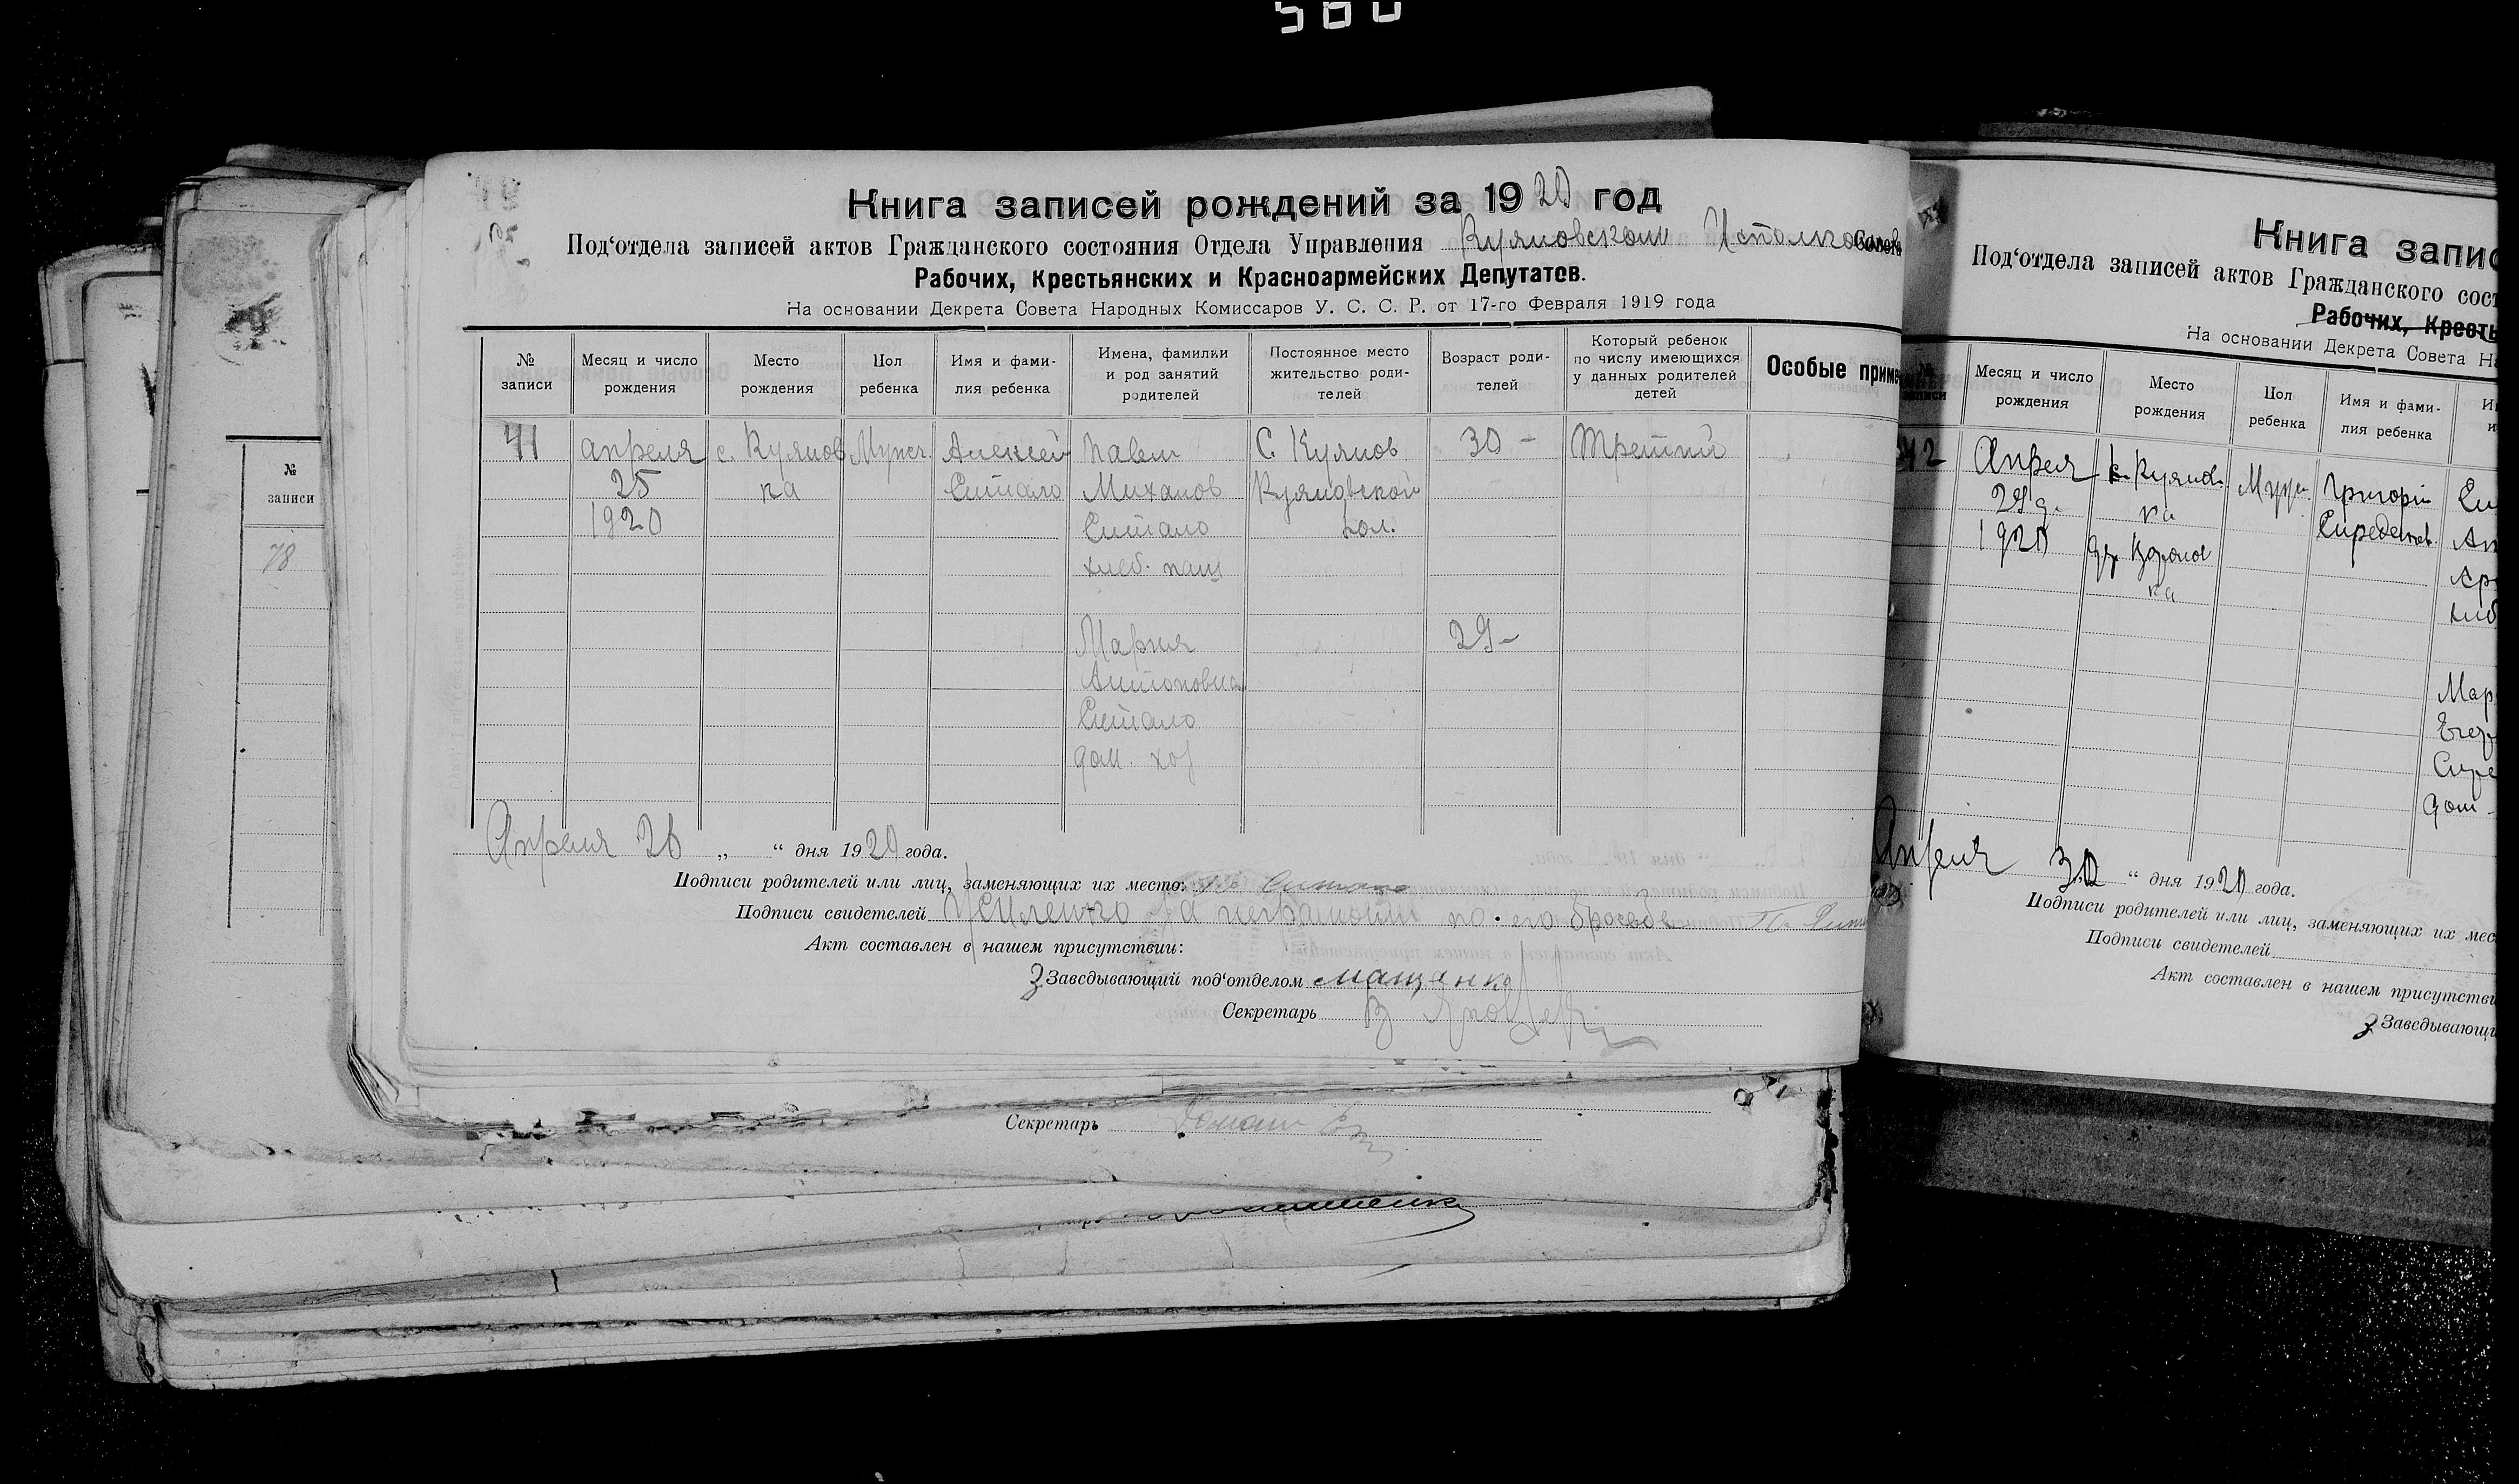 580
Книга записей рождений за 1920 год
Под‘отдела записей актов Гражданского состояния Отдела Управления Куяновском
Рабочих, Крестьянских и Красноармейских Депутатов.
На основании Декрета Совета Народных Комиссаров У. С. С. Р. от 17-го Февраля 1919 года
№ записи
Месяц и число рождения
Место рождения
Пол ребенка
Имя и фами- лия ребенка
Имена, фамилии и род занятий родителей
Постоянное место жительство роди- телей
Возраст роди- телей
Который ребенок по числу имеющихся у данных родителей детей
Особые приме
41
апреля
25
1920
с. Куянов
ка
Мужс.
Алексей
Ситало
Павел
Михаилов
Ситало
хлеб. паш
Мария
Антоновна
Ситало
дом. хоз
С Куянов
Куяновской
вол.
30 -
29 -
Третий
Апреля 26 „ “ дня 1920 года.
Подписи родителей или лиц, заменяющих их место:
Подписи свидетелей
Акт составлен в нашем присутствии:
З Заведывающий под‘отделом Мащенко
Секретарь
Секретарь
№
записи
78
Книга запис
Под‘отдела записей актов Гражданского сост
Рабочих, Кресть
На основании Декрета Совета На
№ записи
Месяц и число рождения
Место рождения
Пол ребенка
Имя и фами- лия ребенка
42
Апреля
29 д.
1920
с. Куянов
ка
ка
Муж.
Григорій
Мар
дом
Апреля 30 “ дня 1920 года.
Подписи родителей или лиц, заменяющих их мес
Подписи свидетелей
Акт составлен в нашем присутстви
З Заведывающи